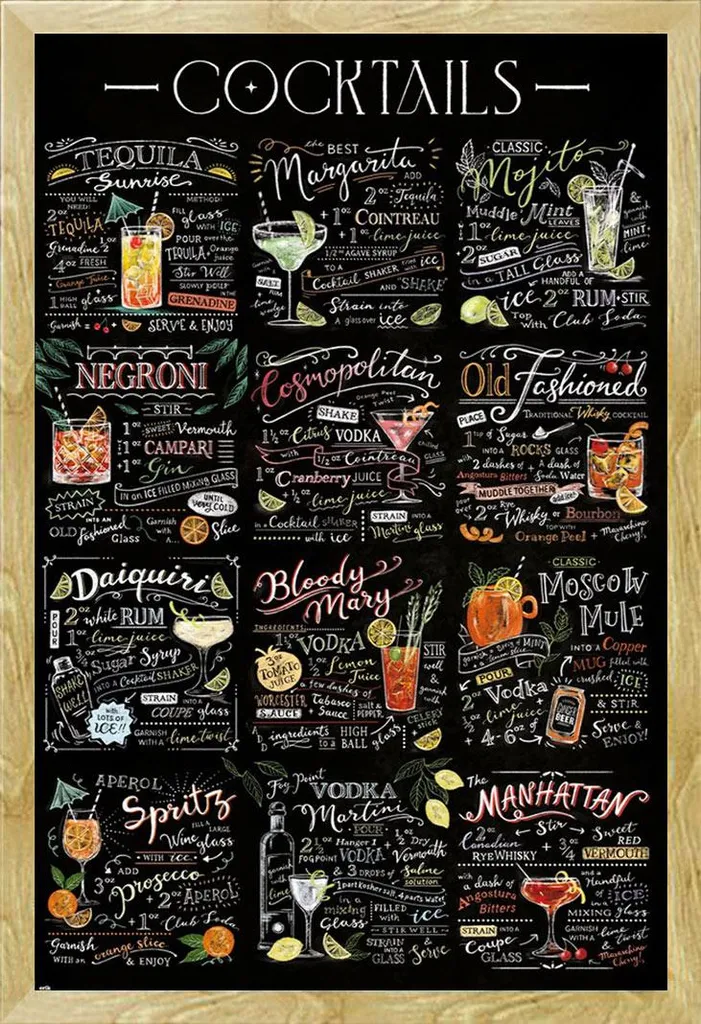 COCKTAILS
TEQUILA
Sunrise
YOU WILL NEED:
2oz TEQUILA
Grenadine
4oz FRESH
Orange Juice
1 HIGH BALL glass
METHOD:
FILL glass
with ICE
POUR over the
TEQUILA & Orange juice
Stir Well
SLOWLY POUR
IN THE
GRENADINE
Garnish
SERVE & ENJOY
the BEST
Margarita
ADD
2oz Tequila
+ 1oz COINTREAU
+ 1oz lime juice
1/2oz AGAVE SYRUP
TO A
Cocktail SHAKER filled with ice
AND SHAKE
SALT RIM
lime wedge
Strain into
A glass over ice
CLASSIC
Mojito
Muddle Mint LEAVES
1oz lime juice
2oz SUGAR
in a TALL Glass
& garnish with MINT & lime
ADD A HANDFUL OF
ice 2oz RUM + STIR
Top with Club Soda
NEGRONI
STIR
1oz SWEET Vermouth
+1oz CAMPARI
+1oz Gin
IN an ICE FILLED MIXING GLASS
STRAIN
UNTIL VERY COLD
INTO AN
OLD fashioned Glass
Garnish with A... Slice
Cosmopolitan
Orange Peel Twist
SHAKE
1 1/2oz Citrus VODKA
with 1/2oz Cointreau
chilled GLASS
1oz Cranberry JUICE
+ 1/2oz lime juice
in a Cocktail SHAKER
with ice
STRAIN INTO A
Martini glass
Old Fashioned
TRADITIONAL Whisky COCKTAIL
PLACE
1tsp of Sugar
into a ROCKS GLASS
with 2 dashes of Angostura Bitters
+ A dash of Soda Water
MUDDLE TOGETHER
add ice
over 2oz Rye Whisky or Bourbon
TOP WITH
Orange Peel + Maraschino Cherry!
Daiquiri
POUR
2oz white RUM
1oz lime juice
3/4oz Sugar Syrup
INTO A Cocktail SHAKER
SHAKE WELL
STRAIN
INTO A COUPE glass
with LOTS OF ICE!!
GARNISH WITH A lime twist
Bloody Mary
INGREDIENTS:
1 1/2oz VODKA
3oz TOMATO JUICE
1/2oz Lemon Juice
a few dashes of
WORCESTER SAUCE
Tabasco Sauce
salt & PEPPER
STIR well & garnish with
CELERY stick
ADD ingredients to a HIGH BALL glass
CLASSIC
MOSCOW MULE
garnish a Sprig of MINT
+ lemon slice
INTO A Copper
MUG filled with
crushed ICE
POUR
2oz Vodka
1/2oz lime juice
+ 4-6oz of
GINGER BEER
& STIR
Serve & ENJOY!
APEROL
Spritz
FILL A LARGE
Wine glass
WITH ice
3oz ADD
Prosecco
+ 2oz APEROL
1oz Club Soda
Garnish
WITH AN orange slice
& ENJOY
Fog Point
VODKA
Martini
POUR
2 1/2oz Hanger 1 FOG POINT VODKA
+ 1/2oz Dry Vermouth
& 3 DROPS of Saline solution
1 part Kosher salt, 4 parts Water
garnish with lime
in a mixing Glass
FILLED with ice
STIR WELL
STRAIN INTO A GLASS & Serve
The
MANHATTAN
2oz Canadian RYE WHISKY
Stir
+ 3/4oz Sweet RED VERMOUTH
with a dash of Angostura Bitters
and a Handful of ICE
in a MIXING glass
STRAIN INTO A
Coupe GLASS
GARNISH WITH lime twist & Maraschino Cherry!